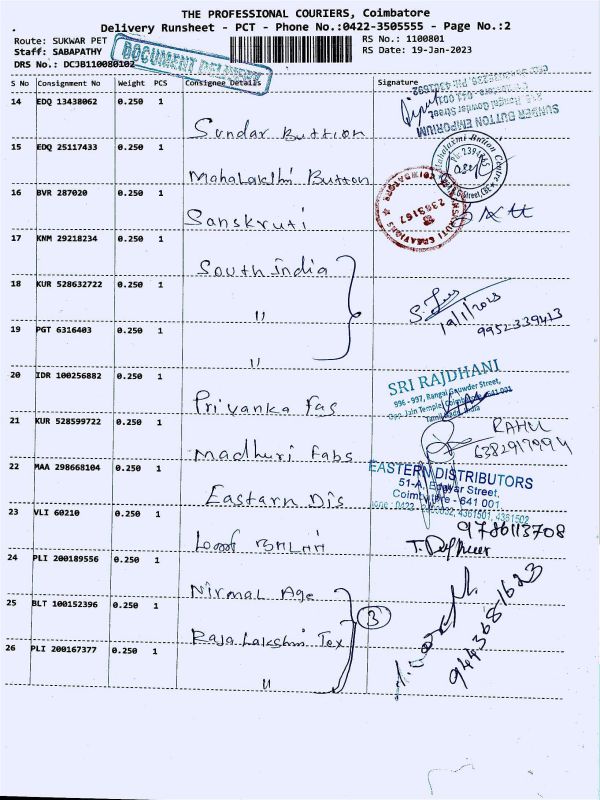 THE PROFESSIONAL COURIERS, Coimbatore
Delivery Runsheet - PCT - Phone No.:0422-3505555 - Page No.:2
Route: SUKWAR PET
RS No.: 1100801
Staff: SABAPATHY
RS Date: 19-Jan-2023
DRS No.: DCJB110080102
DOCUMENT DELIVERY
S No Consignment No Weight PCS Consignee Details Signature
14 EDQ 13438062 0.250 1
Sundar Buttion
SUNDER BUTTON EMPORIUM
15 EDQ 25117433 0.250 1
Mahalakthi Button
Mahalaxmi Button Centre
16 BVR 287020 0.250 1
Sanskruti
2363167
17 KNM 29218234 0.250 1
South india
18 KUR 528632722 0.250 1
"
19/1/2023
9952339413
19 PGT 6316403 0.250 1
"
20 IDR 100256882 0.250 1
Privanka Fas
SRI RAJDHANI
996 - 997, Rangai Gowder Street,
Opp. Jain Temple, Coimbatore - 641 001
Tamil Nadu, India
21 KUR 528599722 0.250 1
Madhuri Fabs
RAHUL
22 MAA 298668104 0.250 1
Eastarn Dis
EASTERN DISTRIBUTORS
51-A, Edayar Street,
Coimbatore - 641 001
4361501, 4361502
23 VLI 60210 0.250 1
9786113708
24 PLI 200189556 0.250 1
Nirmal Age
25 BLT 100152396 0.250 1
Raja Lakshmi Tex
3
9443681623
26 PLI 200167377 0.250 1
"